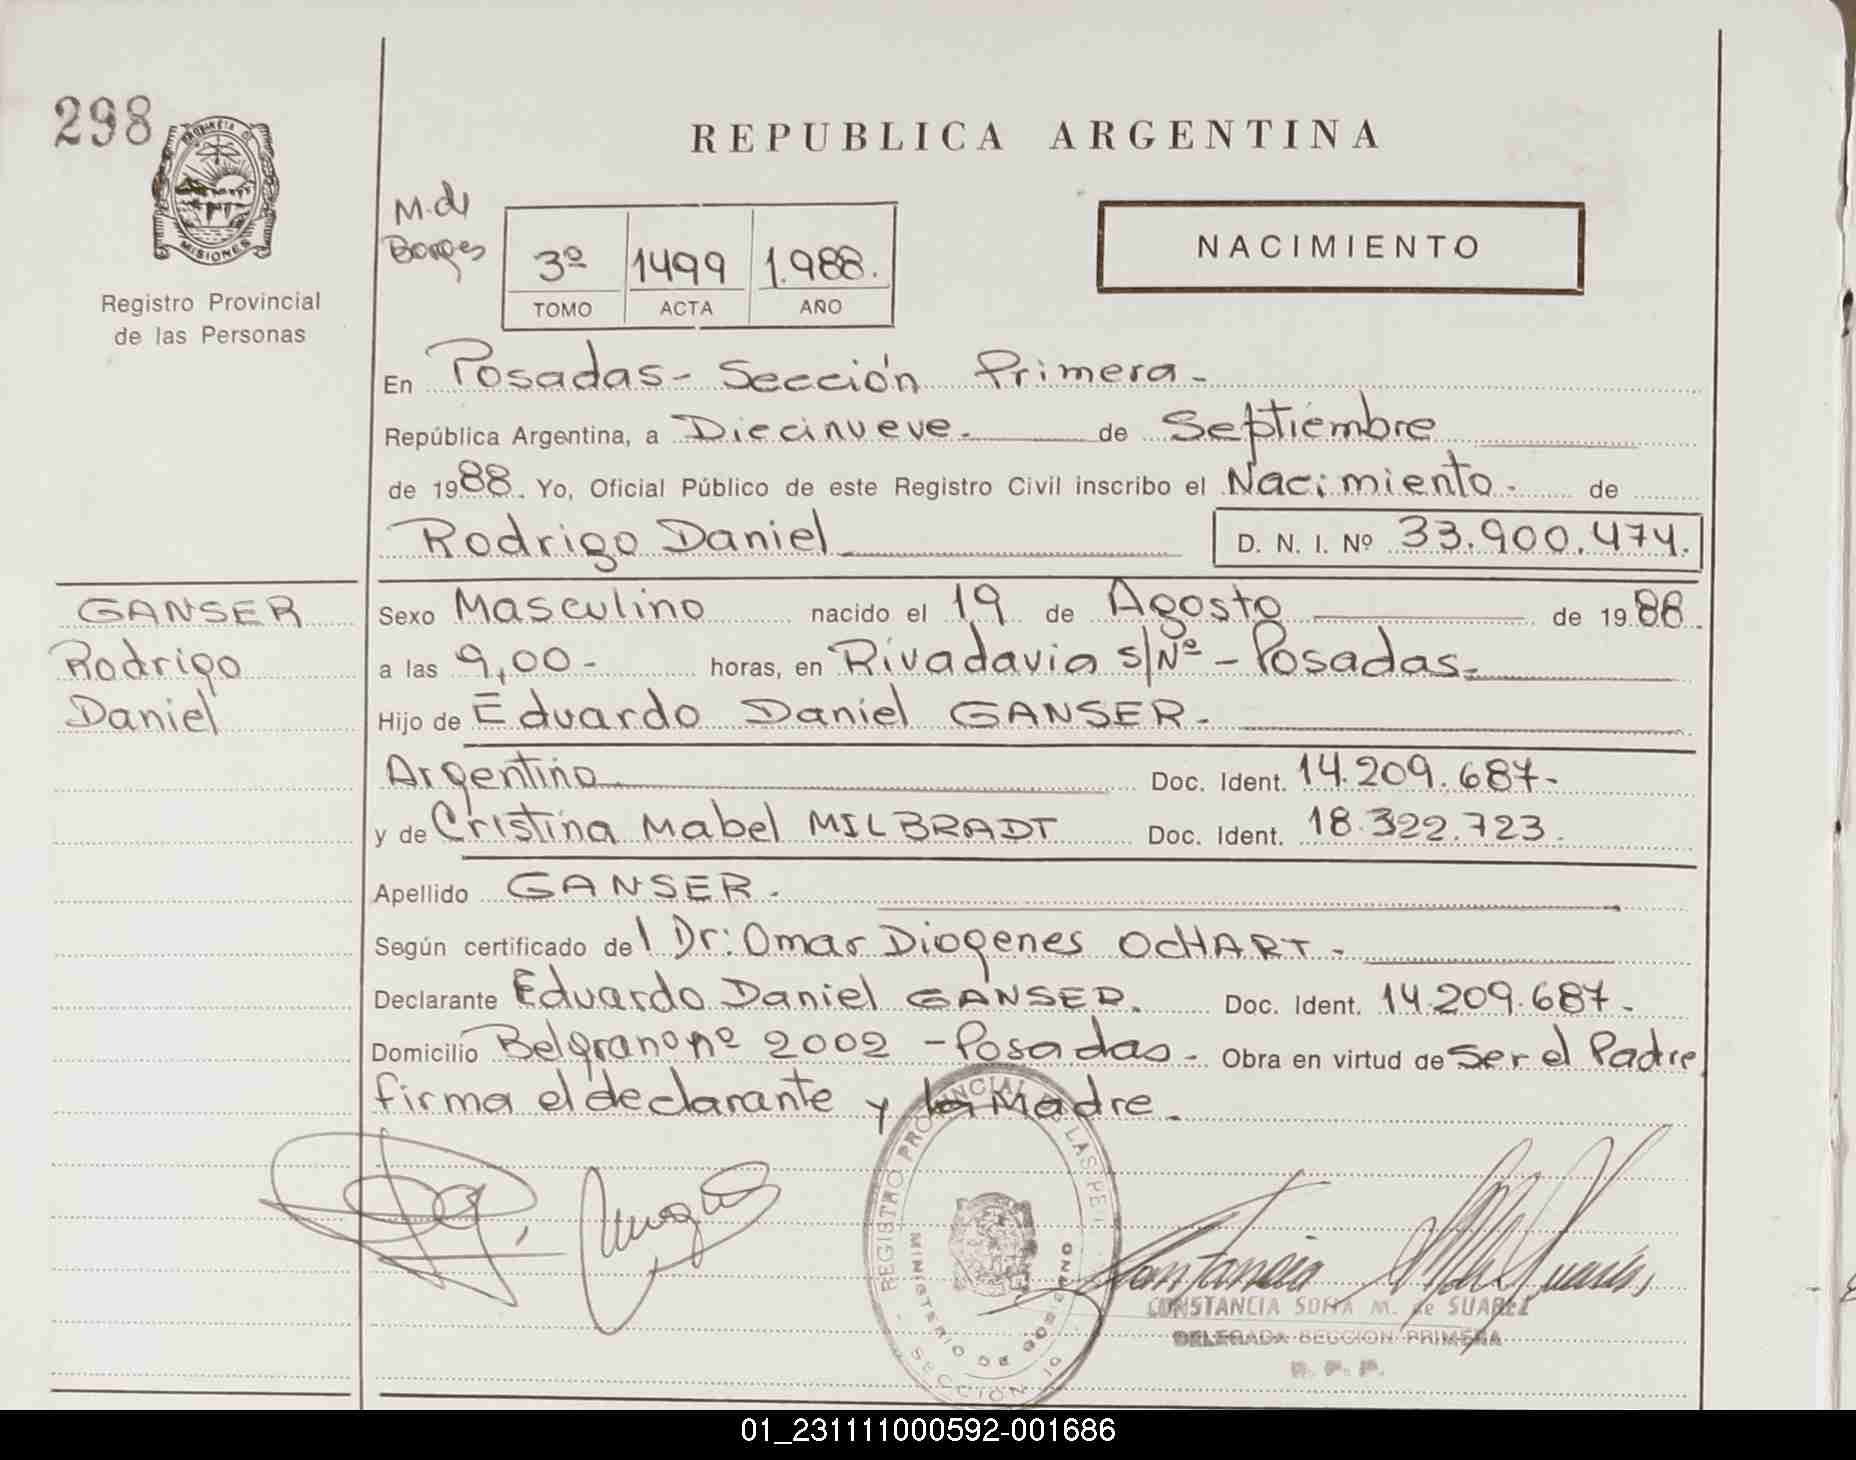 298
PROVINCIA D
MISIONES
Registro Provincial
de las Personas
REPUBLICA ARGENTINA
M. de
Borges
3º 1499 1.988.
TOMO ACTA AÑO
NACIMIENTO
En Posadas - Sección Primera -
República Argentina, a Diecinueve. de Septiembre
de 1988. Yo, Oficial Público de este Registro Civil inscribo el Nacimiento. de
Rodrigo Daniel D. N. I. Nº 33.900.474.
GANSER
Rodrigo
Daniel
Sexo Masculino nacido el 19 de Agosto de 1988.
a las 9,00 - horas, en Rivadavia s/Nº - Posadas.
Hijo de Eduardo Daniel GANSER.
Argentino Doc. Ident. 14.209.687-
y de Cristina Mabel MILBRADT Doc. Ident. 18.322.723.
Apellido GANSER.
Según certificado del Dr: Omar Diogenes OCHART.
Declarante Eduardo Daniel GANSER. Doc. Ident. 14.209.687.
Domicilio Belgrano nº 2002 - Posadas - Obra en virtud de Ser el Padre
firma el declarante y la Madre.
REGISTRO PROVINCIAL DE LAS PE
MINISTERIO DE GOBIERNO
SECCION
Constancia M de Suarez
CONSTANCIA SOFIA M. de SUAREZ
DELEGADA SECCION PRIMERA
R. P. P.
01_231111000592-001686